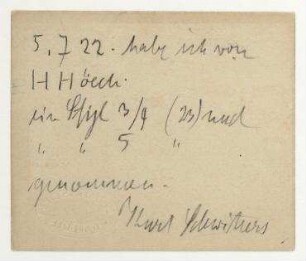 5. 7 22. habe ich von
H Höch.
ein Stijl 3/4 (23) und
" " 5 "
genommen.
Kurt Schwitters